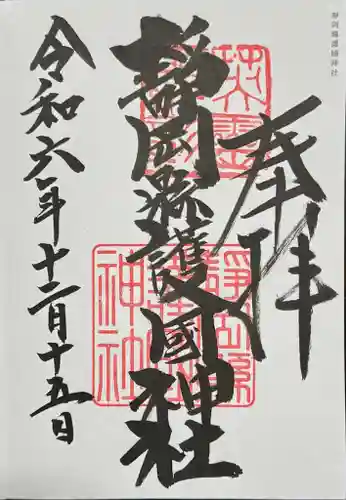 静岡縣護國神社
奉拝
静岡縣護國神社
令和六年十二月十五日
静岡縣護國神社